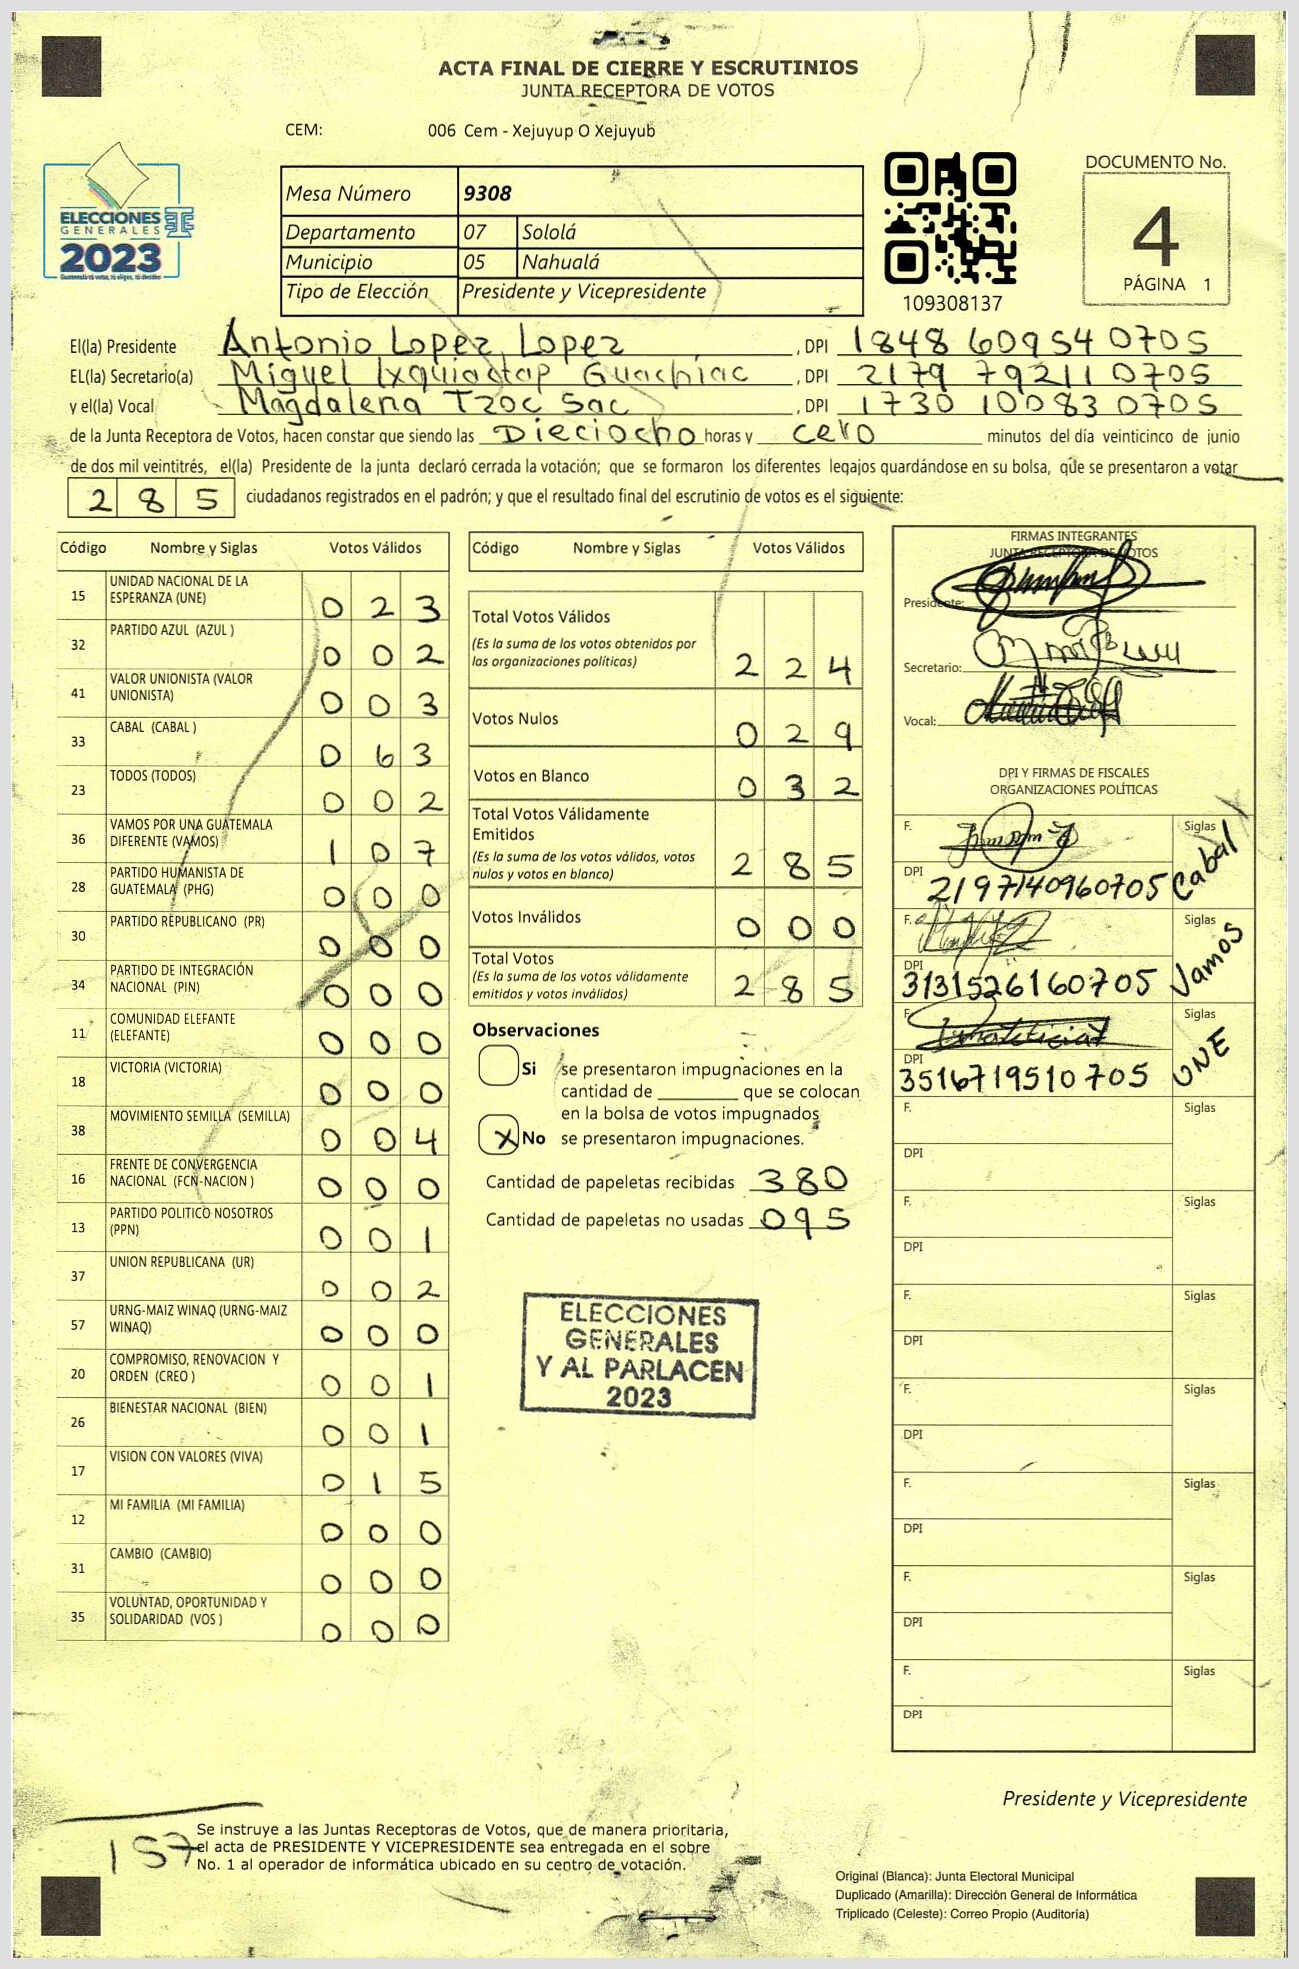 ACTA FINAL DE CIERRE Y ESCRUTINIOS
JUNTA RECEPTORA DE VOTOS
CEM: 006 Cem - Xejuyup O Xejuyub
ELECCIONES
GENERALES
2023
Guatemala tú votas, tú eliges, tú decides
Mesa Número 9308
Departamento 07 Sololá
Municipio 05 Nahualá
Tipo de Elección Presidente y Vicepresidente
109308137
DOCUMENTO No.
4
PÁGINA 1
El(la) Presidente Antonio Lopez Lopez, DPI 1848 60954 0705
EL(la) Secretario(a) Miguel Ixquiactap Guachiac, DPI 2179 79211 0705
y el(la) Vocal Magdalena Tzoc Sac, DPI 1730 10083 0705
de la Junta Receptora de Votos, hacen constar que siendo las Dieciocho horas y cero minutos del día veinticinco de junio
de dos mil veintitrés, el(la) Presidente de la junta declaró cerrada la votación; que se formaron los diferentes legajos guardándose en su bolsa, que se presentaron a votar
285 ciudadanos registrados en el padrón; y que el resultado final del escrutinio de votos es el siguiente:
Código Nombre y Siglas Votos Válidos
15 UNIDAD NACIONAL DE LA ESPERANZA (UNE) 0 2 3
32 PARTIDO AZUL (AZUL ) 0 0 2
41 VALOR UNIONISTA (VALOR UNIONISTA) 0 0 3
33 CABAL (CABAL ) 0 6 3
23 TODOS (TODOS) 0 0 2
36 VAMOS POR UNA GUATEMALA DIFERENTE (VAMOS) 1 0 7
28 PARTIDO HUMANISTA DE GUATEMALA (PHG) 0 0 0
30 PARTIDO REPUBLICANO (PR) 0 0 0
34 PARTIDO DE INTEGRACIÓN NACIONAL (PIN) 0 0 0
11 COMUNIDAD ELEFANTE (ELEFANTE) 0 0 0
18 VICTORIA (VICTORIA) 0 0 0
38 MOVIMIENTO SEMILLA (SEMILLA) 0 0 4
16 FRENTE DE CONVERGENCIA NACIONAL (FCN-NACION ) 0 0 0
13 PARTIDO POLITICO NOSOTROS (PPN) 0 0 1
37 UNION REPUBLICANA (UR) 0 0 2
57 URNG-MAIZ WINAQ (URNG-MAIZ WINAQ) 0 0 0
20 COMPROMISO, RENOVACION Y ORDEN (CREO ) 0 0 1
26 BIENESTAR NACIONAL (BIEN) 0 0 1
17 VISION CON VALORES (VIVA) 0 1 5
12 MI FAMILIA (MI FAMILIA) 0 0 0
31 CAMBIO (CAMBIO) 0 0 0
35 VOLUNTAD, OPORTUNIDAD Y SOLIDARIDAD (VOS ) 0 0 0
Código Nombre y Siglas Votos Válidos
Total Votos Válidos
(Es la suma de los votos obtenidos por
las organizaciones políticas) 2 2 4
Votos Nulos 0 2 9
Votos en Blanco 0 3 2
Total Votos Válidamente
Emitidos
(Es la suma de los votos válidos, votos
nulos y votos en blanco) 2 8 5
Votos Inválidos 0 0 0
Total Votos
(Es la suma de los votos válidamente
emitidos y votos inválidos) 2 8 5
Observaciones
Si se presentaron impugnaciones en la
cantidad de ________ que se colocan
en la bolsa de votos impugnados
X No se presentaron impugnaciones.
Cantidad de papeletas recibidas 380
Cantidad de papeletas no usadas 095
ELECCIONES
GENERALES
Y AL PARLACEN
2023
FIRMAS INTEGRANTES
JUNTA RECEPTORA DE VOTOS
Presidente:
Secretario:
Vocal:
DPI Y FIRMAS DE FISCALES
ORGANIZACIONES POLÍTICAS
F. Siglas Cabal
DPI 2197140960705
F. Siglas Vamos
DPI 3131526160705
F. Siglas UNE
DPI 3516719510705
F. Siglas
DPI
F. Siglas
DPI
F. Siglas
DPI
F. Siglas
DPI
F. Siglas
DPI
F. Siglas
DPI
F. Siglas
DPI
Presidente y Vicepresidente
157
Se instruye a las Juntas Receptoras de Votos, que de manera prioritaria,
el acta de PRESIDENTE Y VICEPRESIDENTE sea entregada en el sobre
No. 1 al operador de informática ubicado en su centro de votación.
Original (Blanca): Junta Electoral Municipal
Duplicado (Amarilla): Dirección General de Informática
Triplicado (Celeste): Correo Propio (Auditoría)